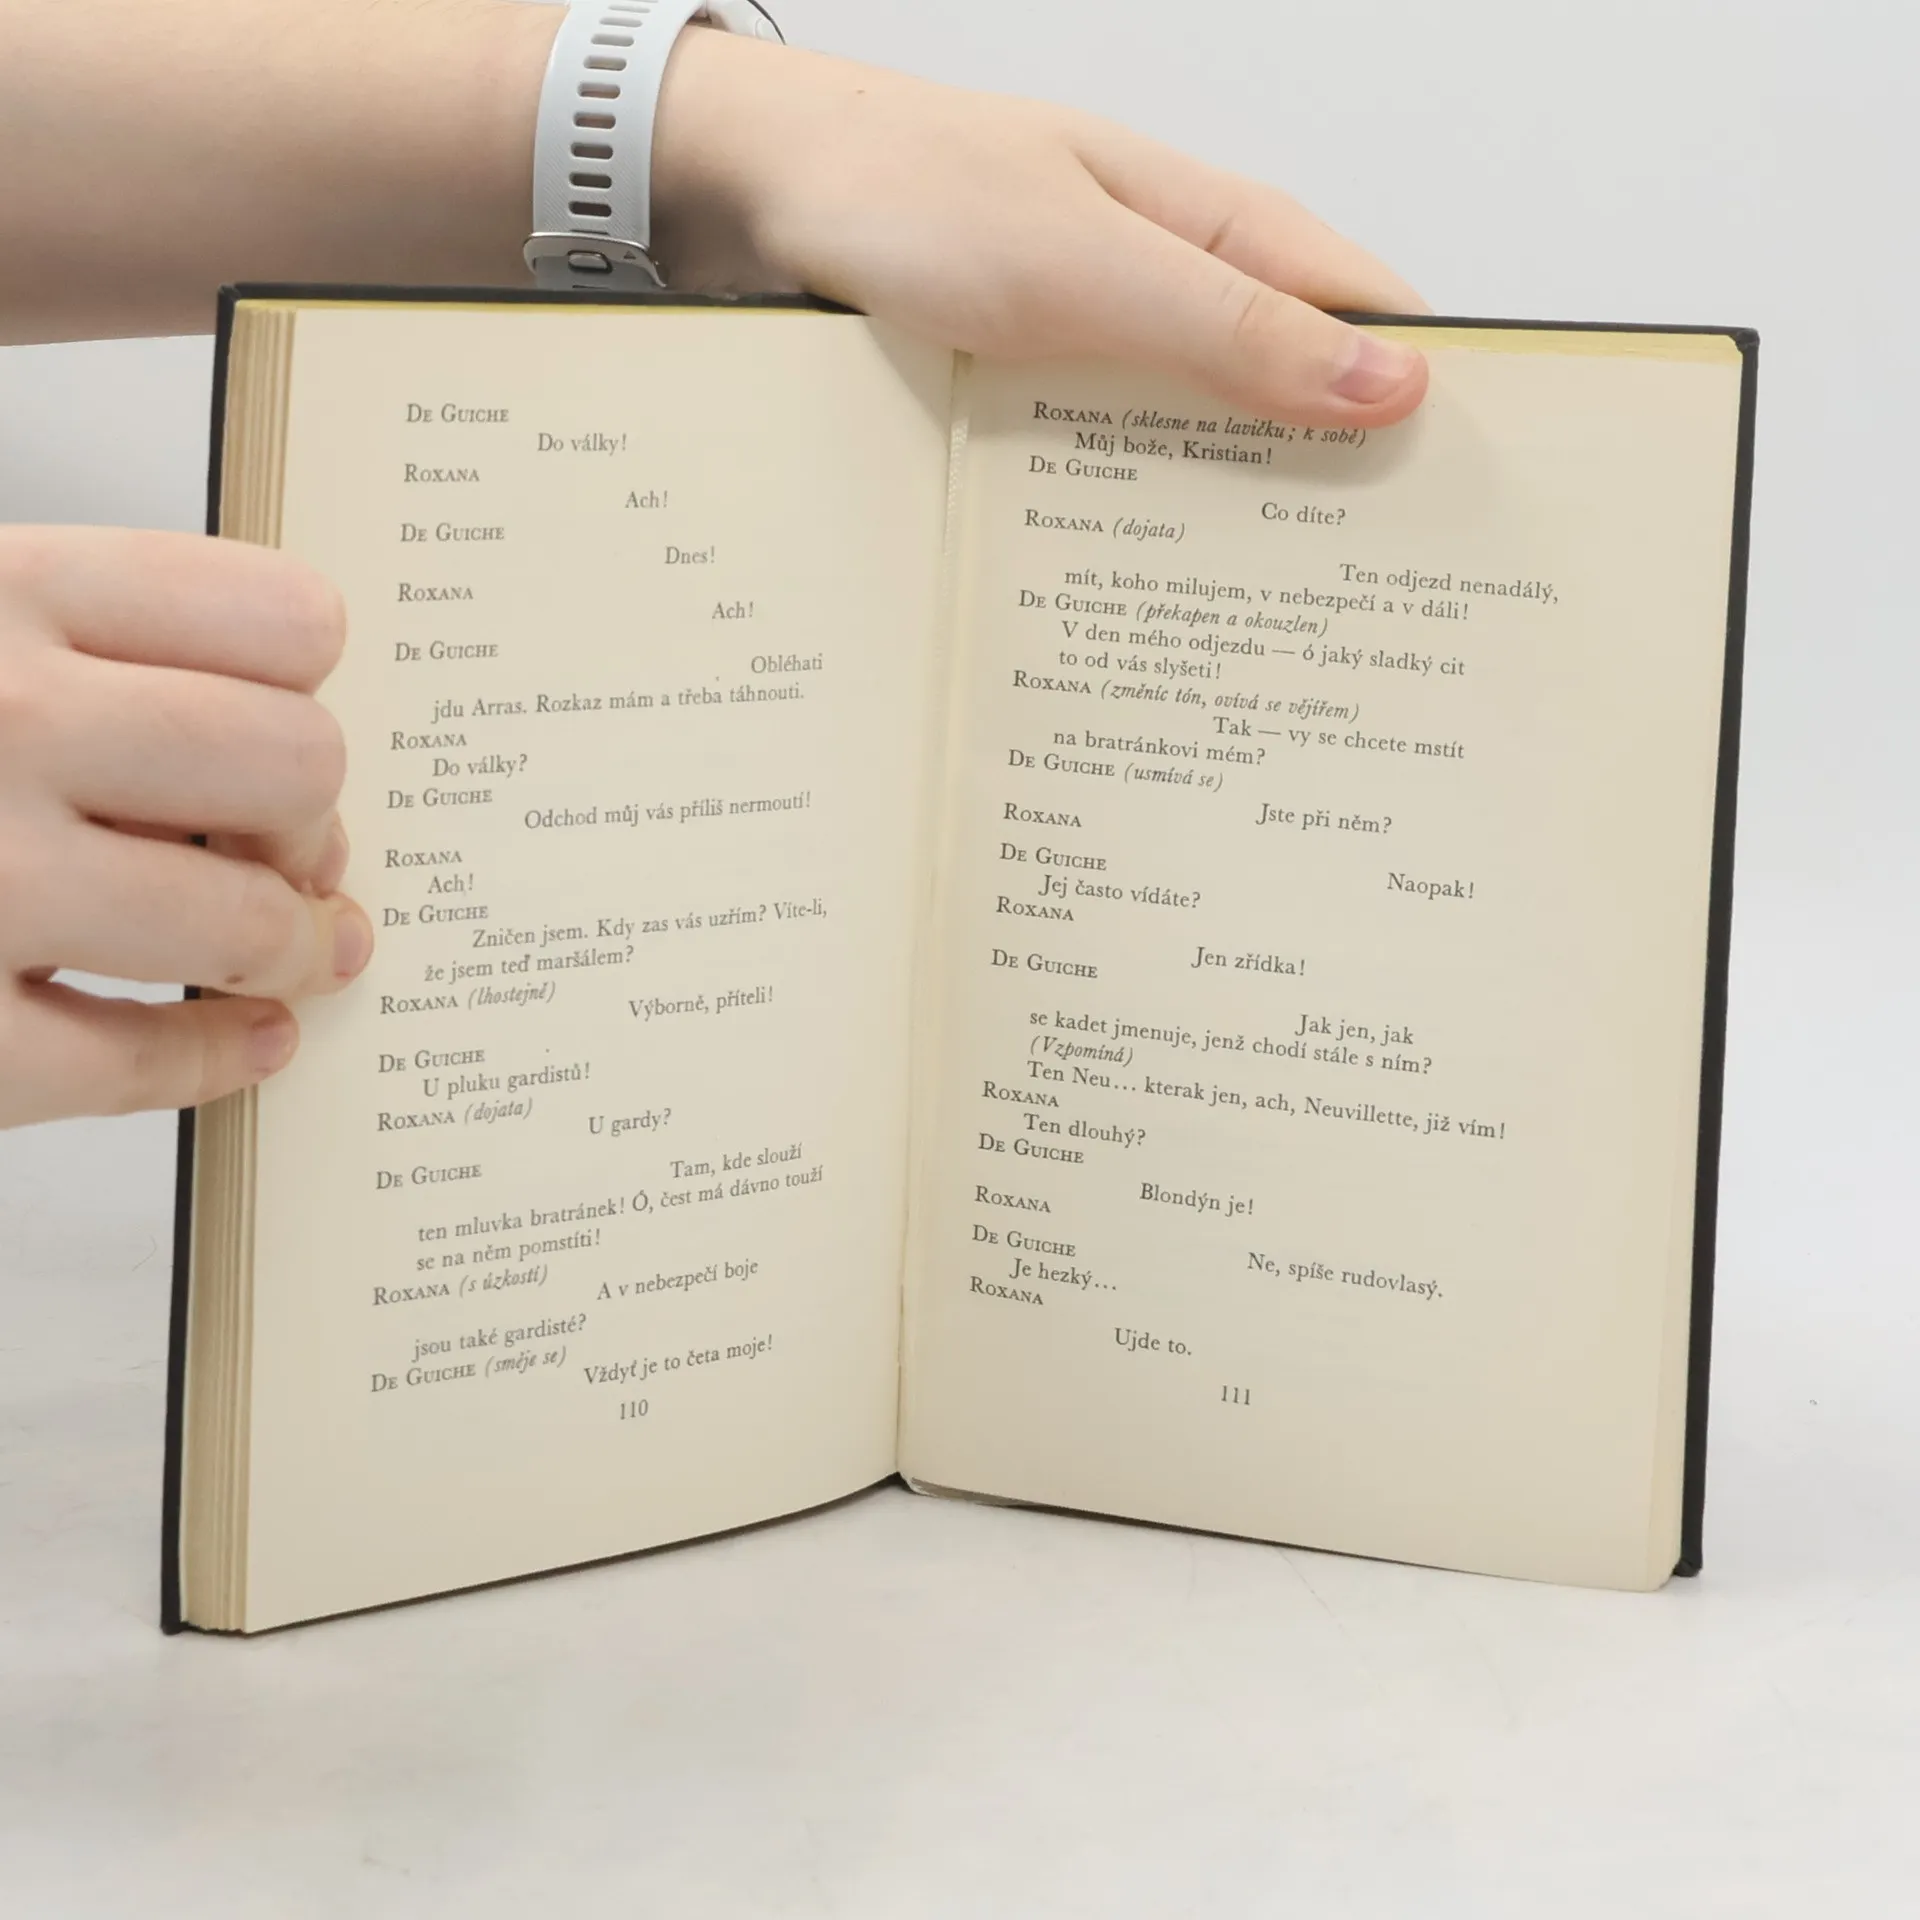 DE GUICHE
Do války!
ROXANA
Ach!
DE GUICHE
Dnes!
ROXANA
Ach!
DE GUICHE
Obléhati
jdu Arras. Rozkaz mám a třeba táhnouti.
ROXANA
Do války?
DE GUICHE
Odchod můj vás příliš nermoutí!
ROXANA
Ach!
DE GUICHE
Zničen jsem. Kdy zas vás uzřím? Víte-li,
že jsem teď maršálem?
ROXANA (lhostejně)
Výborně, příteli!
DE GUICHE
U pluku gardistů!
ROXANA (dojata)
U gardy?
DE GUICHE
Tam, kde slouží
ten mluvka bratránek! Ó, čest má dávno touží
se na něm pomstíti!
ROXANA (s úzkostí)
A v nebezpečí boje
jsou také gardisté?
DE GUICHE (směje se)
Vždyť je to četa moje!
110
ROXANA (sklesne na lavičku; k sobě)
Můj bože, Kristian!
DE GUICHE
Co díte?
ROXANA (dojata)
Ten odjezd nenadálý,
mít, koho milujem, v nebezpečí a v dáli!
DE GUICHE (překapen a okouzlen)
V den mého odjezdu — ó jaký sladký cit
to od vás slyšeti!
ROXANA (změníc tón, ovívá se vějířem)
Tak — vy se chcete mstít
na bratránkovi mém?
DE GUICHE (usmívá se)
Jste při něm?
ROXANA
Naopak!
DE GUICHE
Jej často vídáte?
ROXANA
Jen zřídka!
DE GUICHE
Jak jen, jak
se kadet jmenuje, jenž chodí stále s ním?
(Vzpomíná)
Ten Neu... kterak jen, ach, Neuvillette, již vím!
ROXANA
Ten dlouhý?
DE GUICHE
Blondýn je!
ROXANA
Ne, spíše rudovlasý.
DE GUICHE
Je hezký...
ROXANA
Ujde to.
111